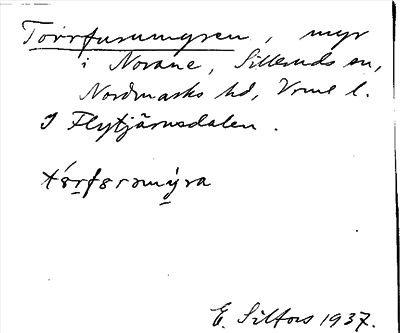 Torrfurumyren, myr
i Norane, Silleruds sn,
Nordmarks hd, Vrml l.
I Flytjärnsdalen.
tórfərəmýra
E. Silfors 1937.